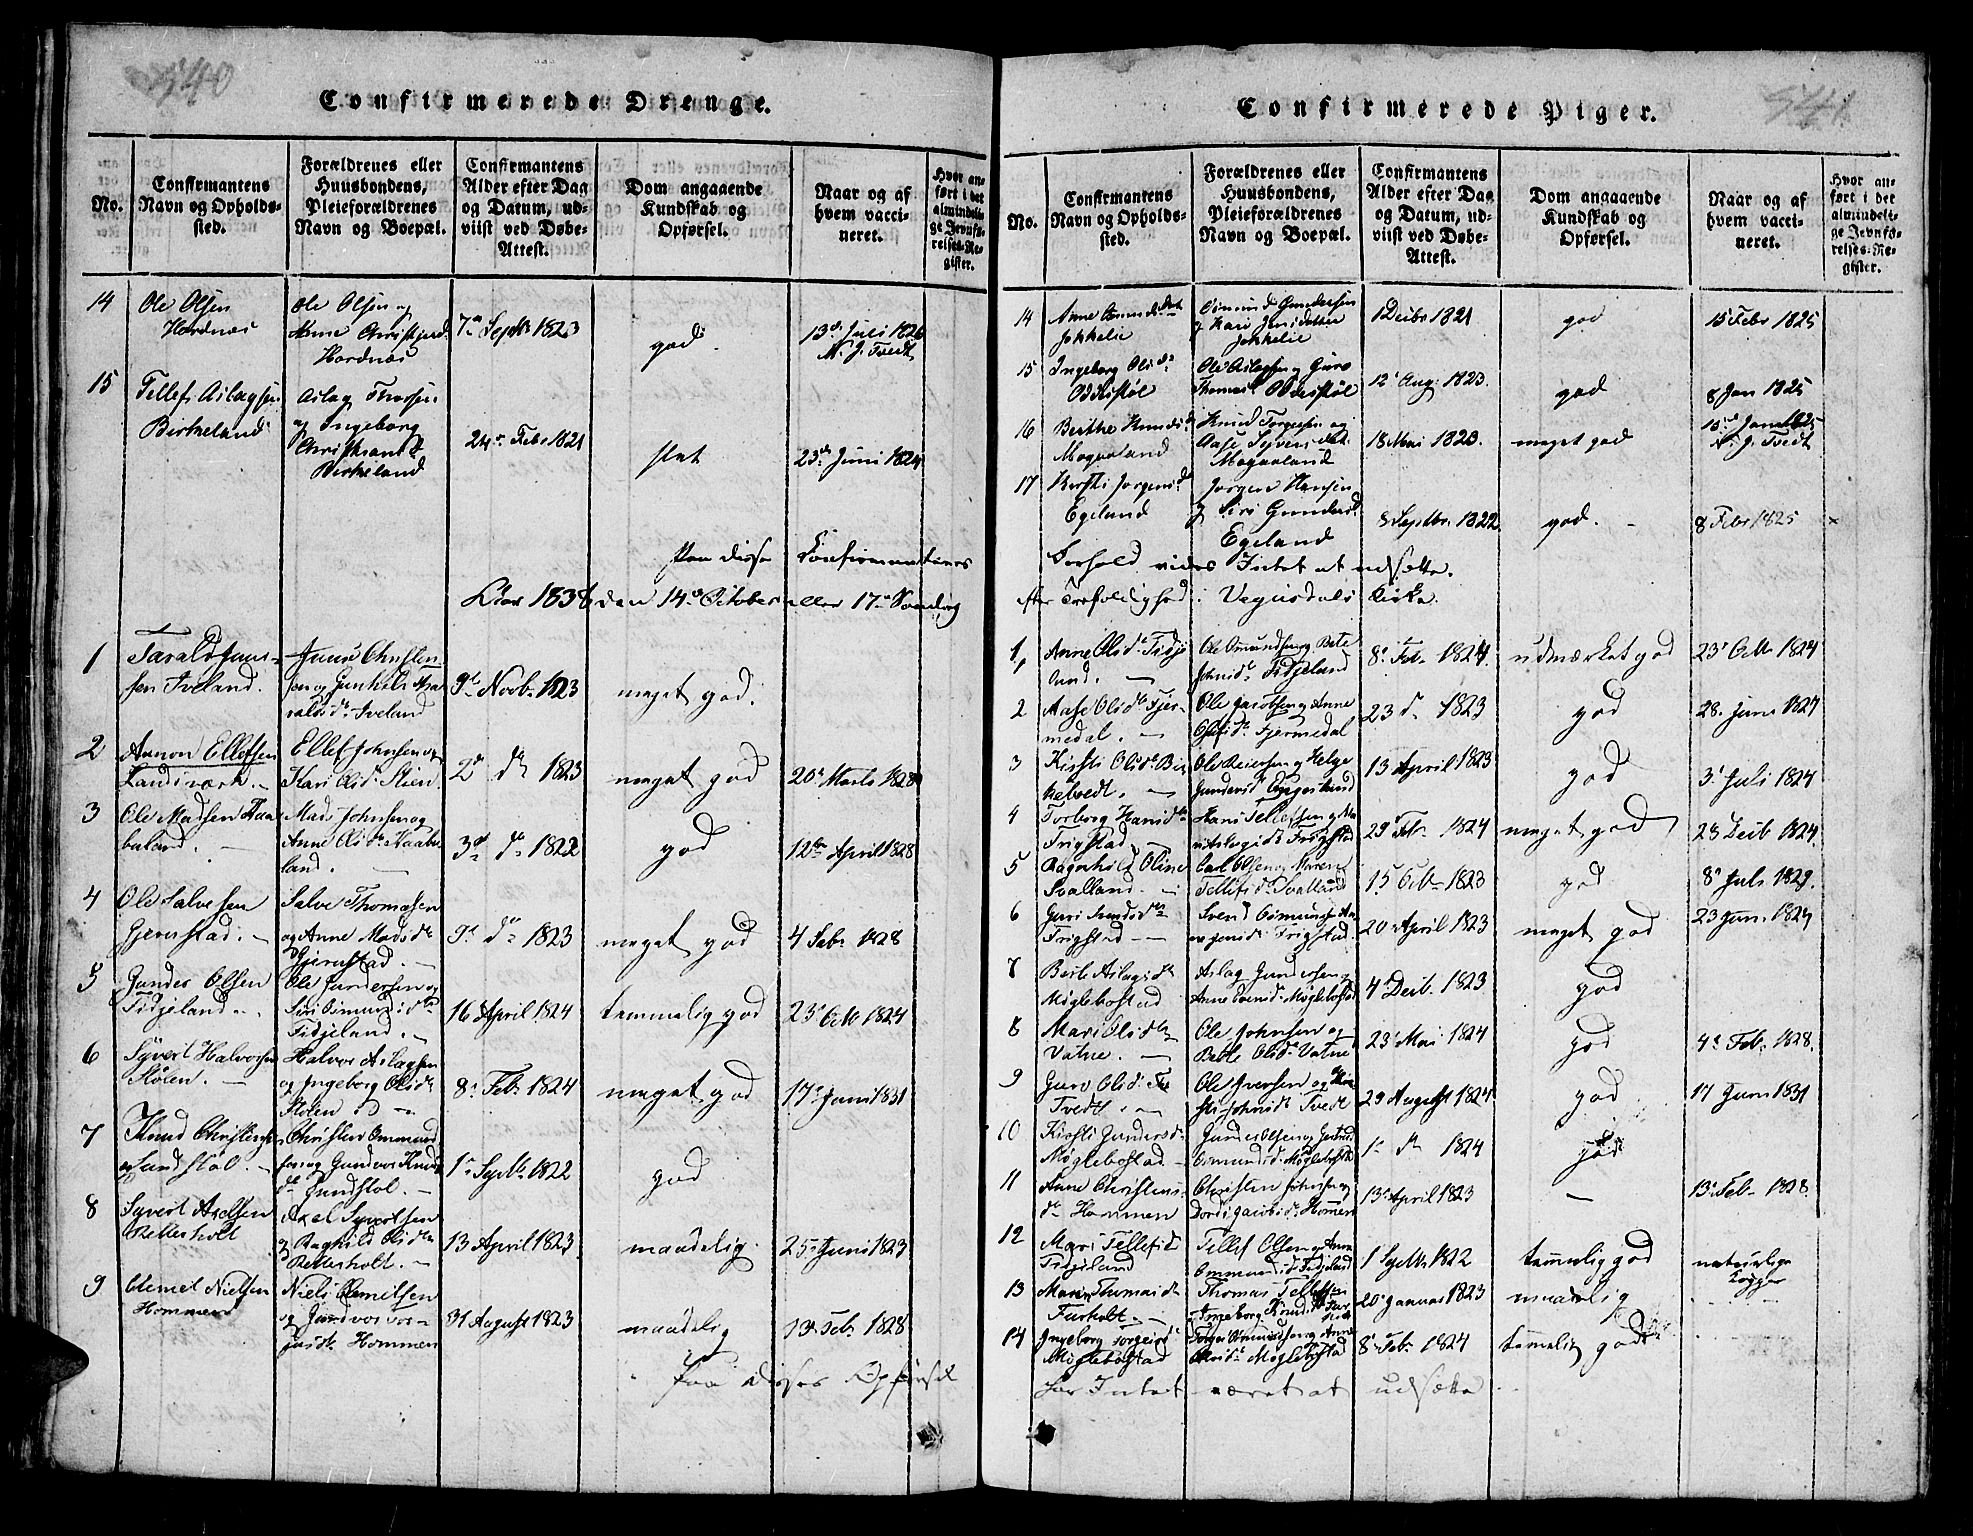 540
Confirmerede Drenge.
No.
Confirmantens
Navn og Opholds-
sted.
Forældrenes eller
Huusbondens,
Pleieforældrenes
Navn og Boepæl.
Confirmantens
Alder efter Dag
og Datum, ud-
viist ved Døbe-
Attest.
Dom angaaende
Kundskab og
Opførsel.
Naar og af
hvem vacci-
neret.
Hvor an-
ført i det
almindeli-
ge Jevnfø-
relses-Re-
gister.
14
Ole Olsen
Hordnæs
Ole Olsen og
Anne
Hordnæs
7de Septb 1823
god.
13de Juli 1826
N. J. Tvedt
15
Tellef Aslagsen
Birkeland
Aslag
og Ingeborg
Birkeland
24de Febr 1821
slet
23de Juni 1824
Paa disse Confirmanteres
Aar 1838 den 14de October eller 17de Søndag
1
Tarald Juns-
sen Iveland.
Juns Christen-
sen og Gunhild Ta-
raldsdr Iveland
9de Novbr 1823
meget god.
2
Annon Ellefsen
Landsværk.
Ellef Johnsen og
Kari Olsdr Stien
2de dr 1823
meget god
20de Marts 1828
3
Ole Madsen Haa-
beland.
Mads Johnsen og
Anne Olsdr Haabe-
land.
3de dr 1822
god
12te April 1828
4
Ole Salvesen
Gjerustad.
Salve Thomasen
og Anne Madsdr
Gjerustad.
9de dr 1823
meget god
4 Febr 1828
5
Gunder Olsen
Fidjeland.
Ole Gundersen og
Siri Osmundsdtr
Fidjeland.
16 April 1824
temmelig god
23de Octb 1824
6
Syvert Halvorsen
Stølen.
Halvor Aslagsen
og Ingeborg Olsdr
Stølen
8de Feb. 1824
meget god
17de Juni 1831
7
Knud Christens.
Gundstøl.
Christen Ommund-
sen og Gundvor Knuds-
dr Gundstøl.
1de Septb 1822
god
8
Syvert Axelsen
Retterholt
Axel Syvertsen
og Raghild Olsdtr
Retterholt.
13 April 1823
maadelig
25de Juni 1823
9
Clemet Nielsen
Hommen
Niels Clemetsen
og Gundvor
Hommen
31 August 1823
maadelig
13de Feb. 1828
Paa disses Opførsel
541.
Confirmerede Piger.
No.
Confirmantens
Navn og Opholds-
sted.
Forældrenes eller
Huusbondens,
Pleieforældrenes
Navn og Boepæl.
Confirmantens
Alder efter Dag
og Datum, ud-
viist ved Døbe-
Attest.
Dom angaaende
Kundskab og
Opførsel.
Naar og af
hvem vacci-
neret.
Hvor an-
ført i det
almindeli-
ge Jevnfø-
relses-Re-
gister.
14
Anne
Jokkelie
Gundersen
og Kari Jensdatter
Jokkelie
1 Decbr 1821
god
15 Febr 1825
15
Ingeborg Olsdr
Oddestøl
Ole Aslagsen og Guro
Thomasd. Oddestøl
12te Aug. 1823.
god
8 Jan 1825
16
Berthe Knudsd.
Mogaaland
Knud Torgersen og
Aase Syvertsdat.
Mogaaland
18 Mai 1823.
meget god
N. J. Tvedt
17
Kirsti Jorgensd.
Egeland
Jorgen Hansen
og Siri Gundersd.
Egeland
8 Septbr. 1822
god.
8 Febr 1825
Forhold vides Intet at udsætte.
efter Trefoldighed i Vegusdals Kirke.
1,
Anne Olsdr Fidje-
land.
Ole Osmundsen og Bete
Johnsdr Fidjeland
8de Feb. 1824.
udmærket god
23de Octb 1824
2
Aase Olsdr Fjer-
medal.
Ole Jacobsen og Anne
Fjermedal
23 dr 1823
god
28. Juni 1824
3
Kirsti Olsdr Bir-
ketvedt.
Ole Reiersen og Helge
Gundersd
13 April 1823
god
3de Juli 1824
4
Torborg Hansdtr
Trigstad
Hans Tellefsen og
Aslagsdr Trigstad
29 Feb. 1824
meget god
23 Decb 1824
5
Ragnhild Oline
Svalland.
Carl Olsen og Maren
Tellefsdr Svalland
15 Octb 1823
god
8de Juli 1829.
6
Guri Svendsdtr
Trigstad
Svend Osmunds
Trigstad.
20 April 1823
meget god
23 Juni 1824
7
Berte Aslagsdr
Møglebostad
Aslag Gundersen og
Anne Møglebostad
4de Decb. 1823
god
8
Mari Olsdtr
Vatne.
Ole Johnsen og
Berte Olsdr Vatne
23de Mai 1824
god
4de Feb. 1828.
9
Guro Olsdr
Tvedt.
Ole Iversen og
Johnsdr Tvedt
29 August 1824
god
17 Juni 1831
10
Kirsti Gundersdr
Møglebostad
Gunder Olsen og
Osmundsdr Møglebostad
1de dr 1824
god
11
Anne Christens-
dr Hommen
Christen Johnsen og
Dordi Jacobsdr Homen
13de April 1823
—
13de Feb. 1828
12
Mari Tellefsdr
Fidjeland
Tellef Olsen og Anne
Ommundsdr Fidjeland
1 Septb. 1822
temmelig god
naturlige
Kopper
13
Maren Thomasdr
Furholt.
Thomas Tellefsen
og Ingeborg Knudsdr
20de Januar 1823
maadelig
14
Ingeborg Torgersdr
Møglebostad
Torger Osmundsen og Anne
Møglebostad
8de Feb. 1824
temelig godt
har Intet været at udsætte